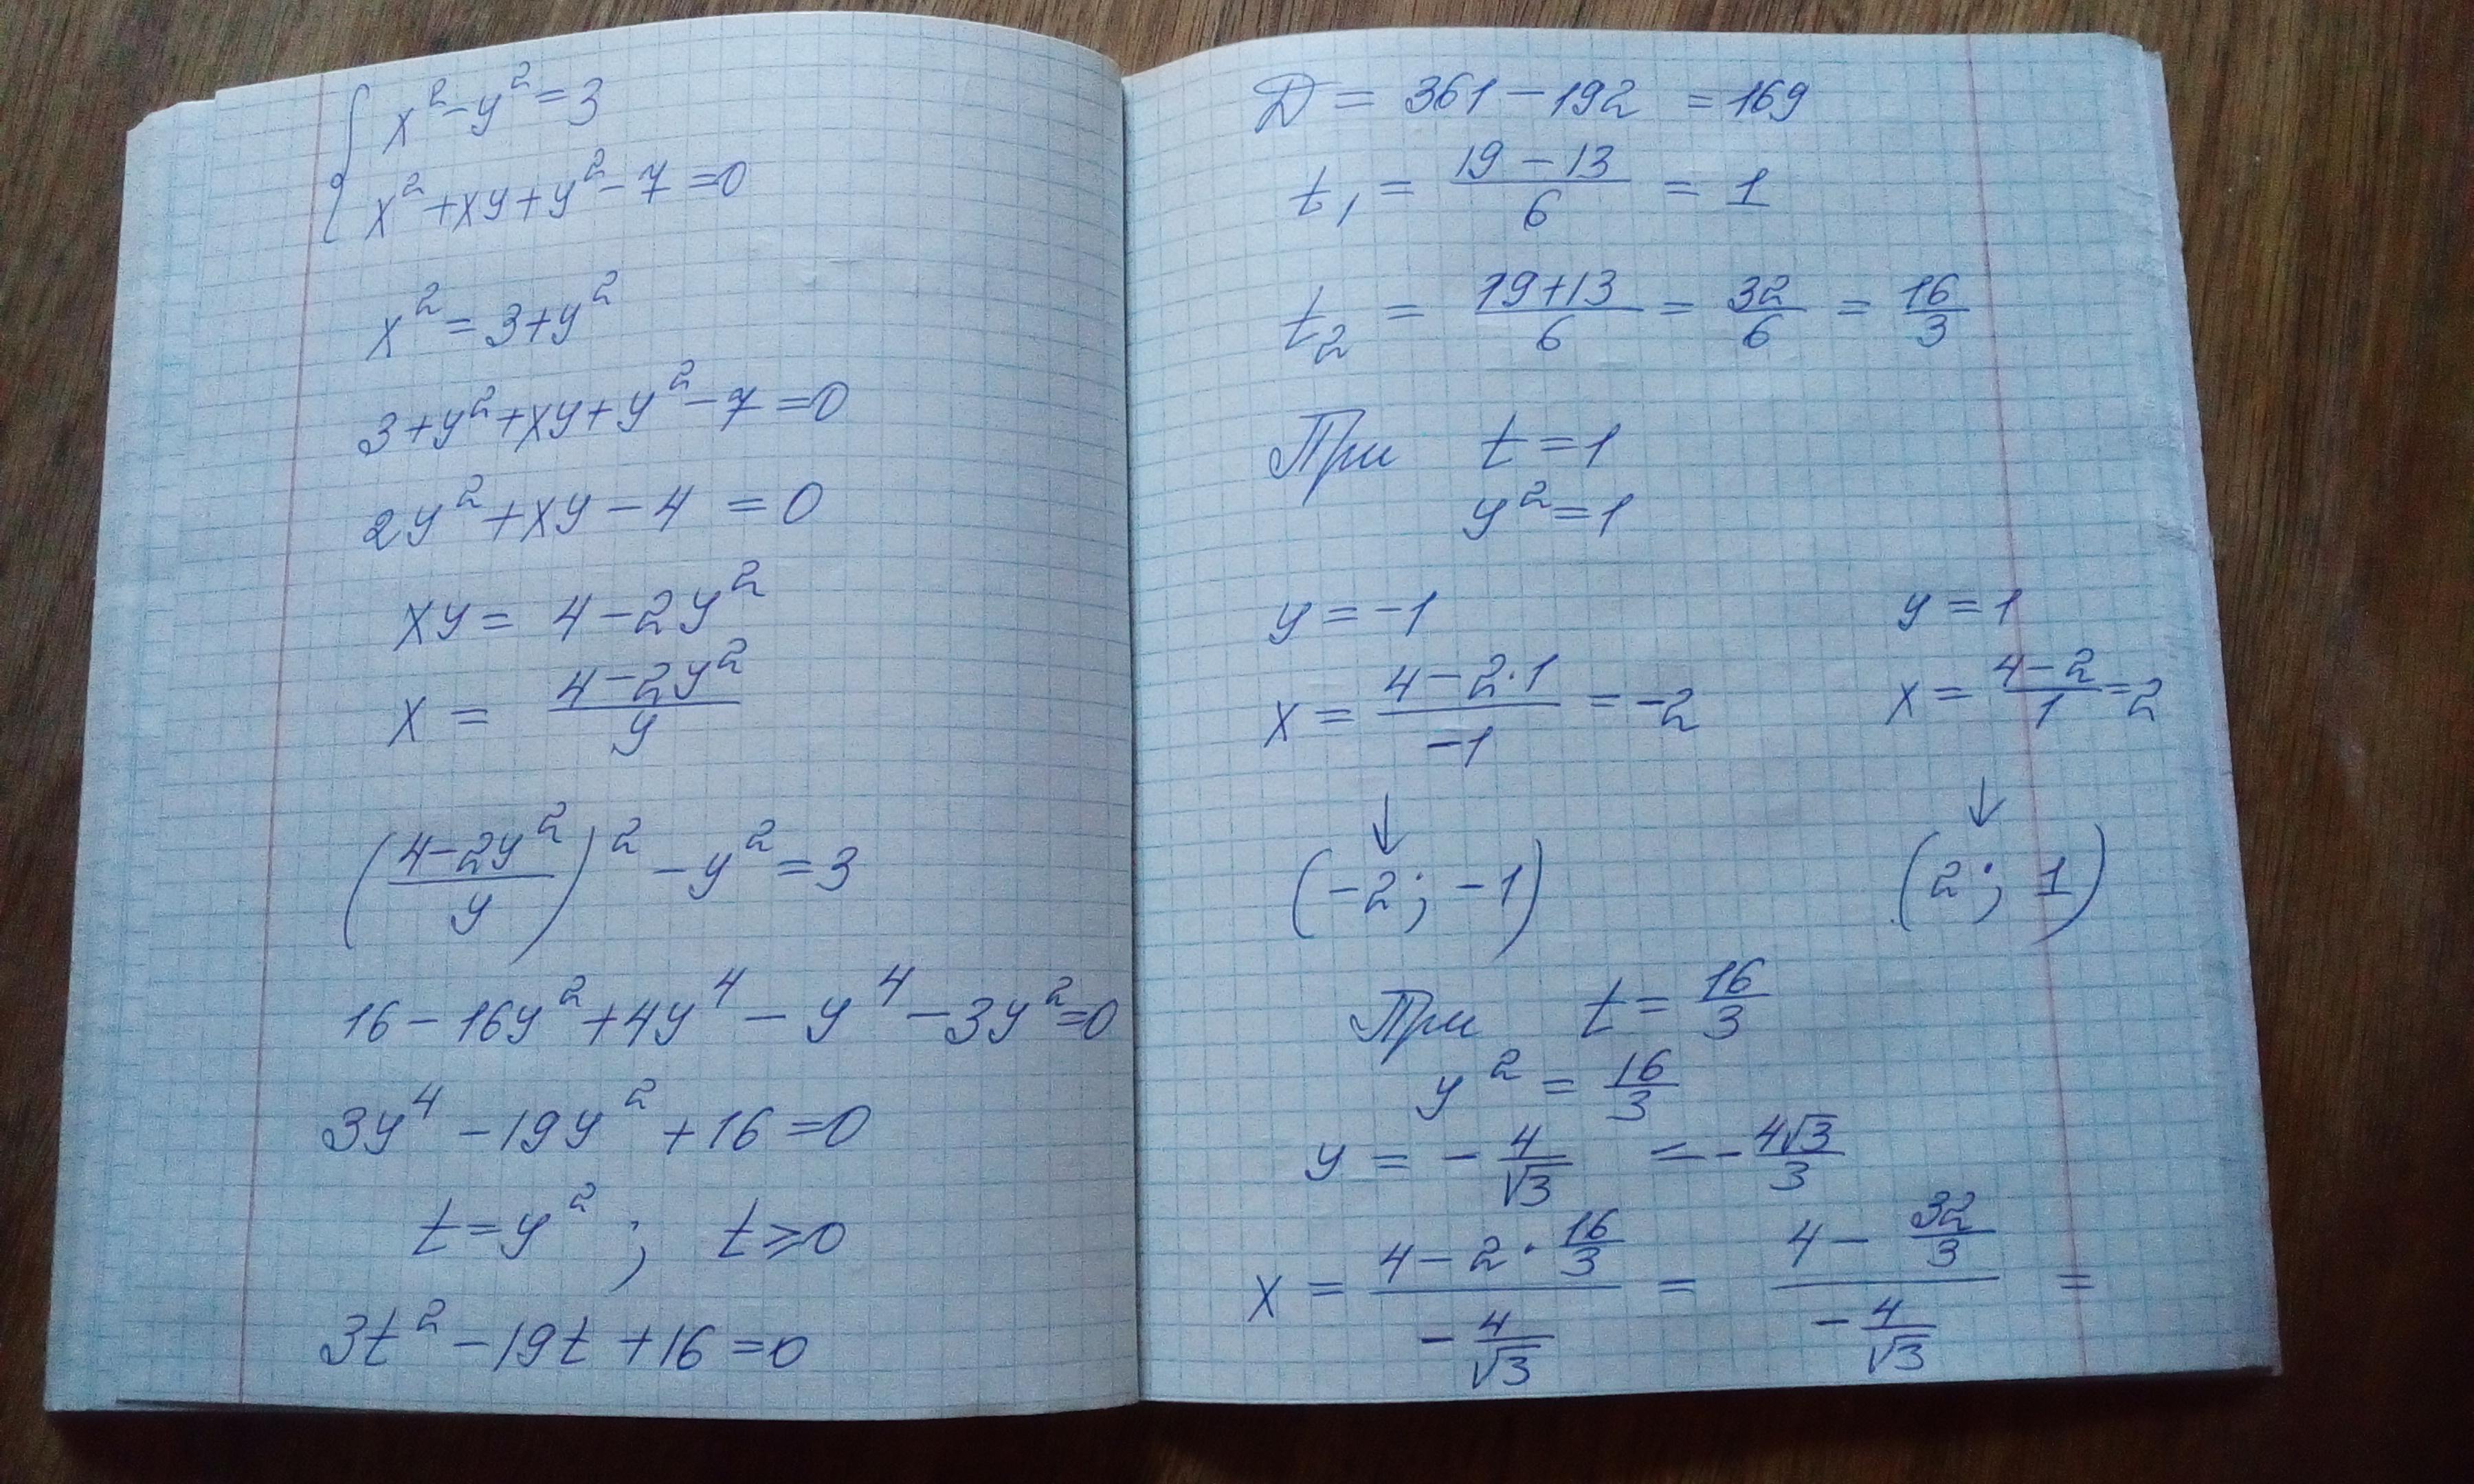 { x² - y² = 3
x² + xy + y² - 7 = 0
x² = 3 + y²
3 + y² + xy + y² - 7 = 0
2y² + xy - 4 = 0
xy = 4 - 2y²
x = (4 - 2y²)/y
((4 - 2y²)/y)² - y² = 3
16 - 16y² + 4y⁴ - y⁴ - 3y² = 0
3y⁴ - 19y² + 16 = 0
t = y² ; t ⩾ 0
3t² - 19t + 16 = 0
Д = 361 - 192 = 169
t₁ = (19 - 13)/6 = 1
t₂ = (19 + 13)/6 = 32/6 = 16/3
При t = 1
y² = 1
y = -1 y = 1
x = (4 - 2·1)/(-1) = -2 x = (4 - 2)/1 = 2
↓ ↓
(-2; -1) (2; 1)
При t = 16/3
y² = 16/3
y = - 4/√3 = - 4√3/3
x = (4 - 2 · 16/3)/(- 4/√3) = (4 - 32/3)/(- 4/√3) =